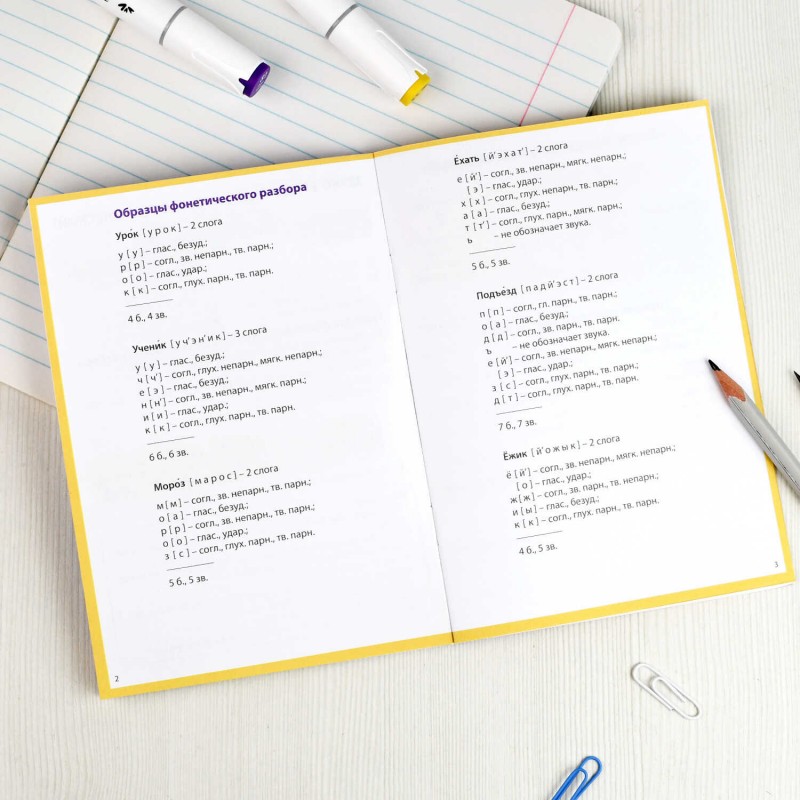 Образцы фонетического разбора
Уро́к [ у р о к ] – 2 слога
у [ у ] – глас., безуд.;
р [ р ] – согл., зв. непарн., тв. парн.;
о [ о ] – глас., удар.;
к [ к ] – согл., глух. парн., тв. парн.
4 б., 4 зв.
Учени́к [ у ч’ э н’ и к ] – 3 слога
у [ у ] – глас., безуд.;
ч [ ч’ ] – согл., глух. непарн., мягк. непарн.;
е [ э ] – глас., безуд.;
н [ н’ ] – согл., зв. непарн., мягк. парн.;
и [ и ] – глас., удар.;
к [ к ] – согл., глух. парн., тв. парн.
6 б., 6 зв.
Моро́з [ м а р о с ] – 2 слога
м [ м ] – согл., зв. непарн., тв. парн.;
о [ а ] – глас., безуд.;
р [ р ] – согл., зв. непарн., тв. парн.;
о [ о ] – глас., удар.;
з [ с ] – согл., глух. парн., тв. парн.
5 б., 5 зв.
2
Е́хать [ й’ э х а т’ ] – 2 слога
е [ й’ ] – согл., зв. непарн., мягк. непарн.;
[ э ] – глас., удар.;
х [ х ] – согл., глух. непарн., тв. парн.;
а [ а ] – глас., безуд.;
т [ т’ ] – согл., глух. парн., мягк. парн.;
ь – не обозначает звука.
5 б., 5 зв.
Подъе́зд [ п а д й’ э с т ] – 2 слога
п [ п ] – согл., гл. парн., тв. парн.;
о [ а ] – глас., безуд.;
д [ д ] – согл., зв. парн., тв. парн.
ъ – не обозначает звука.
е [ й’ ] – согл., зв. непарн., мягк. непарн.;
[ э ] – глас., удар.;
з [ с ] – согл., глух. парн., тв. парн.;
д [ т ] – согл., глух. парн., тв. парн.
7 б., 7 зв.
Ёжик [ й’ о ж ы к ] – 2 слога
ё [ й’ ] – согл., зв. непарн., мягк. непарн.;
[ о ] – глас., удар.;
ж [ ж ] – согл., зв. парн., тв. непарн.;
и [ ы ] – глас., безуд.;
к [ к ] – согл., глух. парн., тв. парн.
4 б., 5 зв.
3